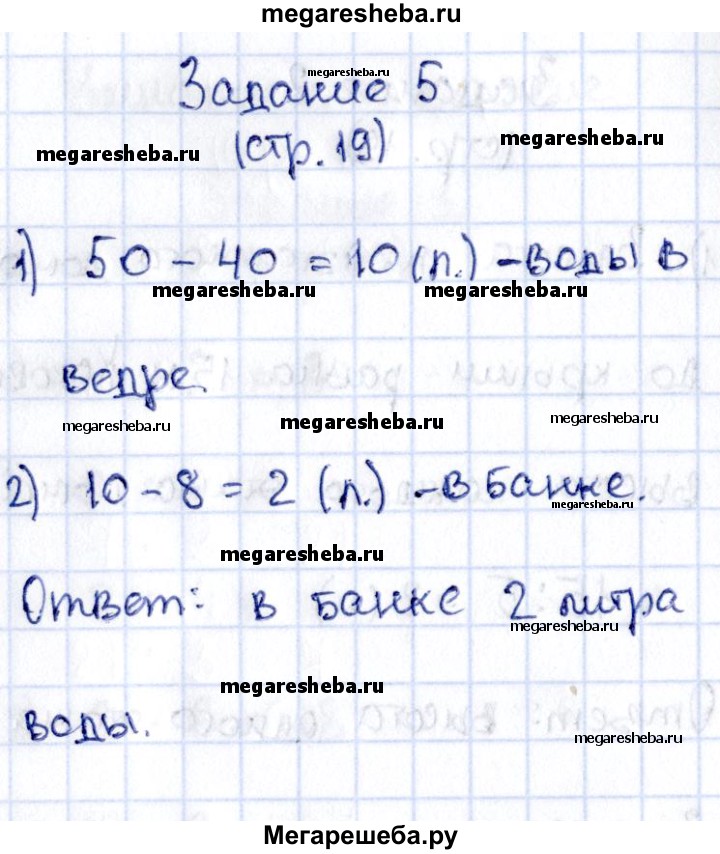 megaresheba.ru
megaresheba.ru
Задание 5
megaresheba.ru
(стр. 19)
megaresheba.ru
1) 50 - 40 = 10 (л.) - воды в
megaresheba.ru
megaresheba.ru
ведре.
megaresheba.ru
megaresheba.ru
megaresheba.ru
2) 10 - 8 = 2 (л.) - в банке.
megaresheba.ru
megaresheba.ru
Ответ: в банке 2 литра
megaresheba.ru
megaresheba.ru
воды.
megaresheba.ru
Мегарешеба.ру